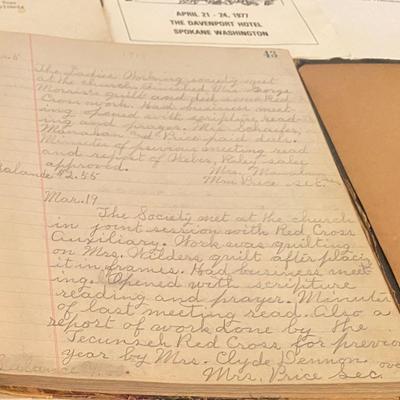 APRIL 21 - 24, 1977
THE DAVENPORT HOTEL
SPOKANE WASHINGTON
43
The Ladies Working Society met
at the church. Finished Mrs. George
Morris's quilt and did some Red
Cross work. Had business meet
ing opened with scripture read
ing and prayer. Mrs. Schaefer,
Manahan and Price paid dues.
Minutes of previous meeting read
and report of sales
approved.
Mrs. Price sec.
Balance $2.55
Mar. 19
The Society met at the church
in joint session with Red Cross
Auxiliary. Work was quilting
on Mrs. Wilders quilt after placi
it in frames. Had business meet
ing. Opened with scripture
reading and prayer. Minutes
of last meeting read. Also a
report of work done by the
Tecumseh Red Cross for previou
year by Mrs. Clyde Dennon over
Mrs. Price sec.
Balance